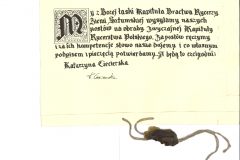 My z Bożej łaski Kapituła Bractwa Rycerzy
Ziemi Szetumskiej wysyłamy naszych
posłów na obrady Zwyczajnej Kapituły
Rycerstwa Polskiego. Za posłów ręczymy
i za ich kompetencje słowo nasze dajemy i co własnym
podpisem i pieczęcią potwierdzamy. Ja będę to czcigodni
Katarzyna Ciecierska